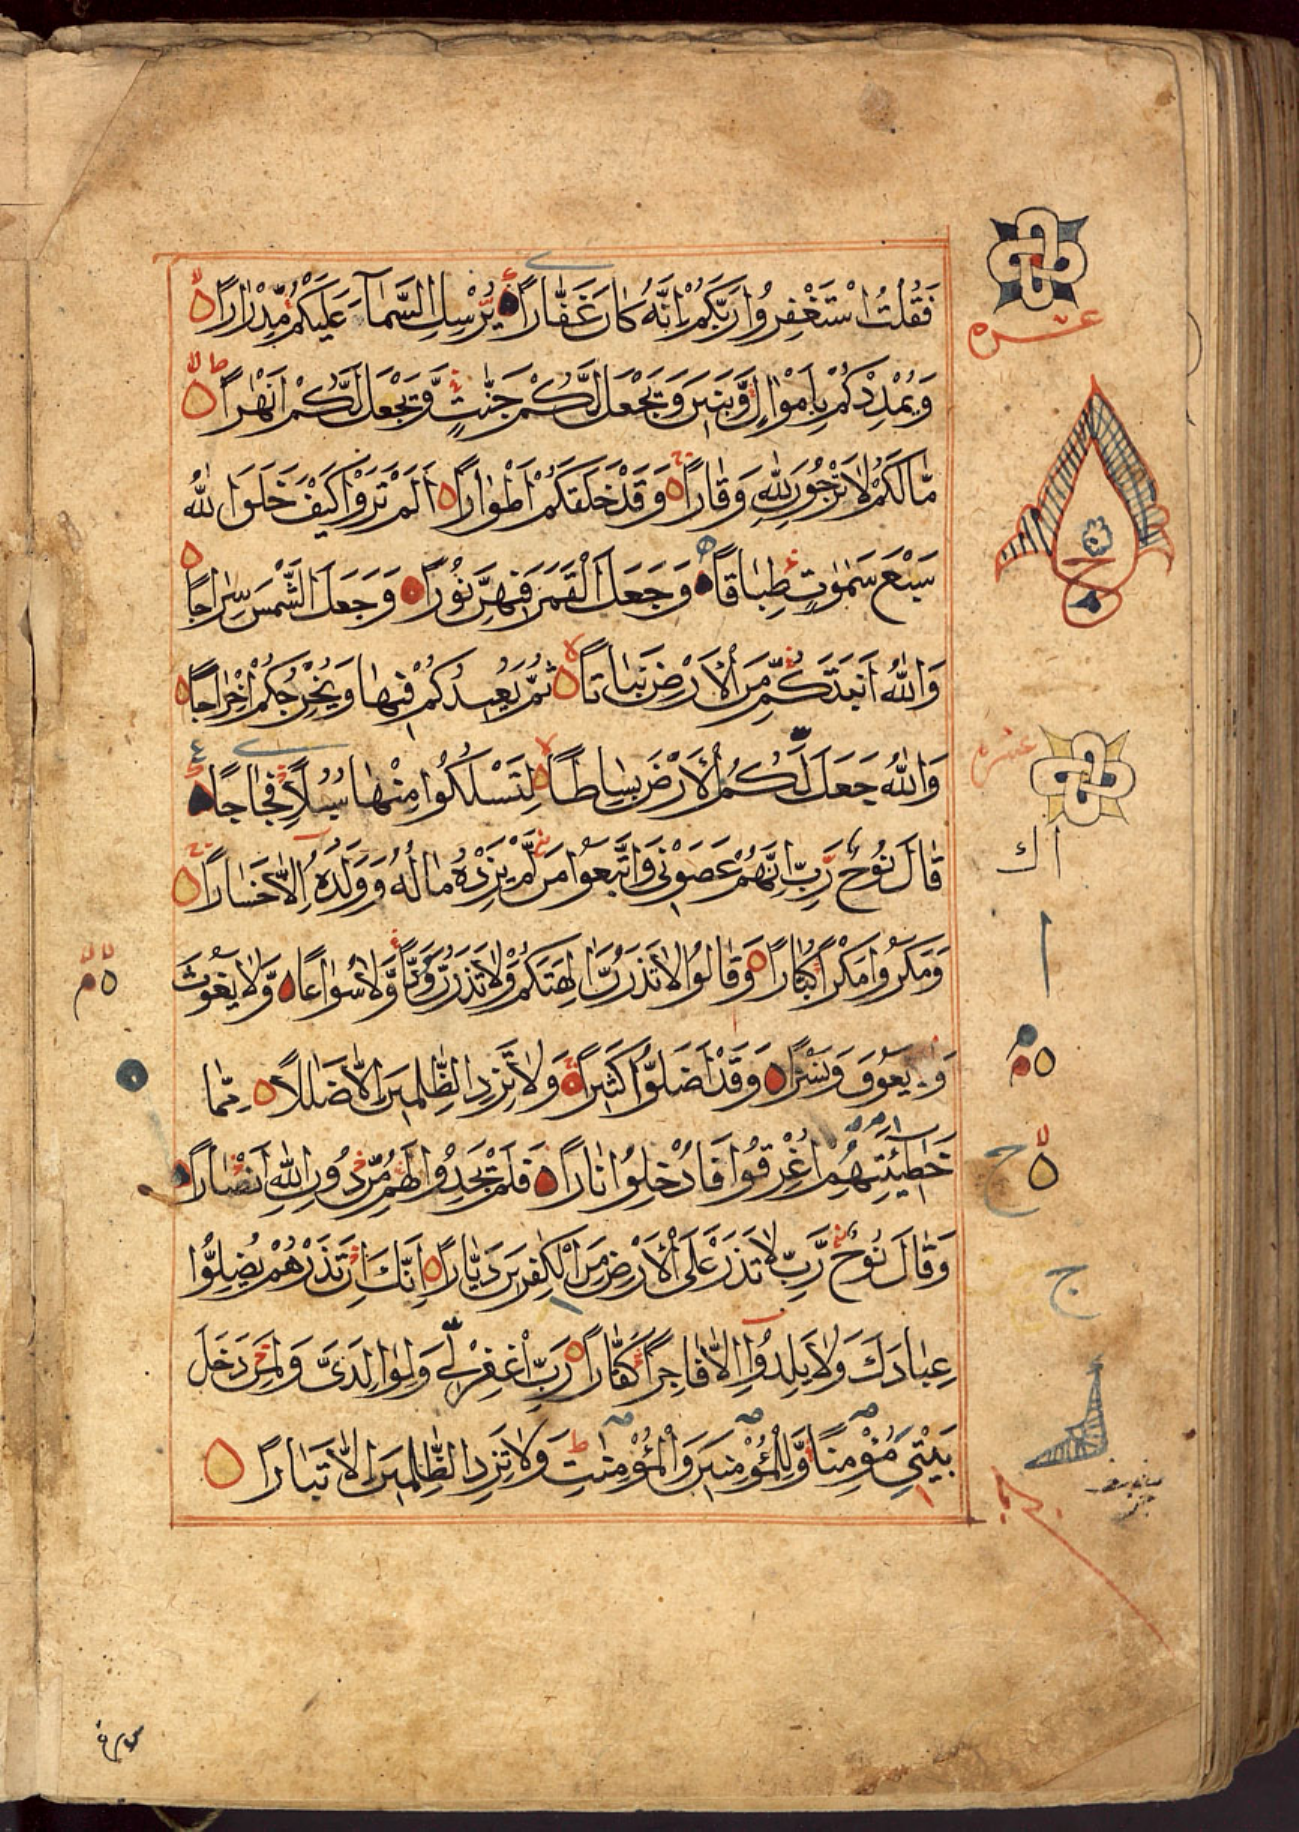 فَقُلْتُ اسْتَغْفِرُوا رَبَّكُمْ اِنَّهُ كَانَ غَفَّارًا يُرْسِلِ السَّمَآءَ عَلَيْكُمْ مِّدْرَارًا
وَيُمْدِدْكُمْ بِاَمْوَالٍ وَّبَنِيْنَ وَيَجْعَلْ لَّكُمْ جَنّٰتٍ وَّيَجْعَلْ لَّكُمْ اَنْهٰرًا
مَالَكُمْ لَا تَرْجُوْنَ لِلّٰهِ وَقَارًا وَقَدْ خَلَقَكُمْ اَطْوَارًا اَلَمْ تَرَوْا كَيْفَ خَلَقَ اللّٰهُ
سَبْعَ سَمٰوٰتٍ طِبَاقًا وَجَعَلَ الْقَمَرَ فِيْهِنَّ نُوْرًا وَجَعَلَ الشَّمْسَ سِرَاجًا
وَاللّٰهُ اَنْبَتَكُمْ مِّنَ الْاَرْضِ نَبَاتًا ثُمَّ يُعِيْدُكُمْ فِيْهَا وَيُخْرِجُكُمْ اِخْرَاجًا
وَاللّٰهُ جَعَلَ لَكُمُ الْاَرْضَ بِسَاطًا لِتَسْلُكُوْا مِنْهَا سُبُلًا فِجَاجًا
قَالَ نُوْحٌ رَّبِّ اِنَّهُمْ عَصَوْنِيْ وَاتَّبَعُوْا مَنْ لَّمْ يَزِدْهُ مَالُهُ وَوَلَدُهُ اِلَّا خَسَارًا
وَمَكَرُوْا مَكْرًا كُبَّارًا وَقَالُوْا لَا تَذَرُنَّ اٰلِهَتَكُمْ وَلَا تَذَرُنَّ وَدًّا وَّلَا سُوَاعًا وَّلَا يَغُوْثَ
وَيَعُوْقَ وَنَسْرًا وَقَدْ اَضَلُّوْا كَثِيْرًا وَلَا تَزِدِ الظّٰلِمِيْنَ اِلَّا ضَلٰلًا مِمَّا
خَطِيْئٰتِهِمْ اُغْرِقُوْا فَاُدْخِلُوْا نَارًا فَلَمْ يَجِدُوْا لَهُمْ مِّنْ دُوْنِ اللّٰهِ اَنْصَارًا
وَقَالَ نُوْحٌ رَّبِّ لَا تَذَرْ عَلَى الْاَرْضِ مِنَ الْكٰفِرِيْنَ دَيَّارًا اِنَّكَ اِنْ تَذَرْهُمْ يُضِلُّوْا
عِبَادَكَ وَلَا يَلِدُوْا اِلَّا فَاجِرًا كَفَّارًا رَبِّ اغْفِرْ لِيْ وَلِوَالِدَيَّ وَلِمَنْ دَخَلَ
بَيْتِيَ مُؤْمِنًا وَّلِلْمُؤْمِنِيْنَ وَالْمُؤْمِنٰتِ وَلَا تَزِدِ الظّٰلِمِيْنَ اِلَّا تَبَارًا
عشره
عشره
اك
ا
ج
سورة